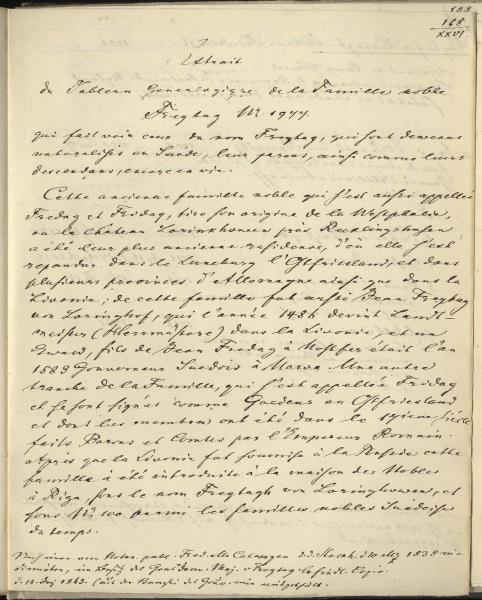 188
168
XXVI
Extrait
du Tableau Genealogique de la Famille noble
Freytag No. 1977.
qui fait voir ceux du nom Freytag, qui sont devenus
naturalisés en Suède, leur parens, ainsi comme leurs
descendans, encore en vie.
Cette ancienne famille noble qui s'est aussi appellée
Fredag et Fridag, tire son origine de la Westphalie,
ou le château Lorinkhowen près Recklingshusen
a été leur plus ancienne residence, d'où elle s'est
repandue dans le Luneburg l'Ostfriesland, et dans
plusieurs provinces d'Allemagne ainsi que dans la
Livonie; de cette famille fut aussi Jean Freytag
von Loringhof, qui l'année 1485 devint Landt-
meister (Herrmästare) dans la Livonie, et un
Ewald, fils de Jean Fredag à était l'an
1583 Gouverneur Suedois à Narva. Une autre
branche de la Famille, qui s'est appellée Fridag
et se sont signés comme Goedens en Ostfriesland
et dont les membres ont été dans le siècle
faits Barons et Comtes par l'Empereur Romain.
Après que la Livonie fut soumise à la Russie cette
famille a été introduite à la maison des Nobles
à Riga, sous le nom Freytagh von Loringhowen, et
sous No. 100 parmi les familles nobles Suedoises
du temps.
Nach einer vom Notar. publ. Fred. d.d. Stockh. d. 10 1838
im Besitz des Maj. v Freytag
d. 14. Dez 1863.